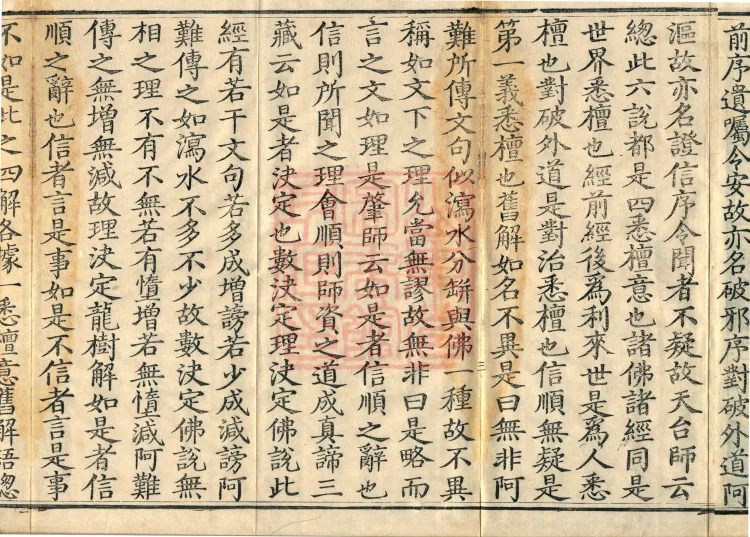 前序遺囑令安故亦名破邪序對破外道阿
漚故亦名證信序令聞者不疑故天台師云
緫此六說都是四悉檀意也諸佛諸經同是
世界悉檀也經前經後為利來世是為人悉
檀也對破外道是對治悉檀也信順無疑是
第一義悉檀也舊解如名不異是曰無非阿
難所傳文句似瀉水分缾與佛一種故不異
稱如文下之理允當無謬故無非曰是略而
言之文如理是肇師云如是者信順之辭也
信則所聞之理會順則師資之道成真諦三
藏云如是者決定也數決定理決定佛說此
經有若干文句若多成增謗若少成減謗阿
難傳之如瀉水不多不少故數決定佛說無
相之理不有不無若有墮增若無墮減阿難
傳之無增無減故理決定龍樹解如是者信
順之辭也信者言是事如是不信者言是事
不如是此之四解各據一悉檀意舊解語緫